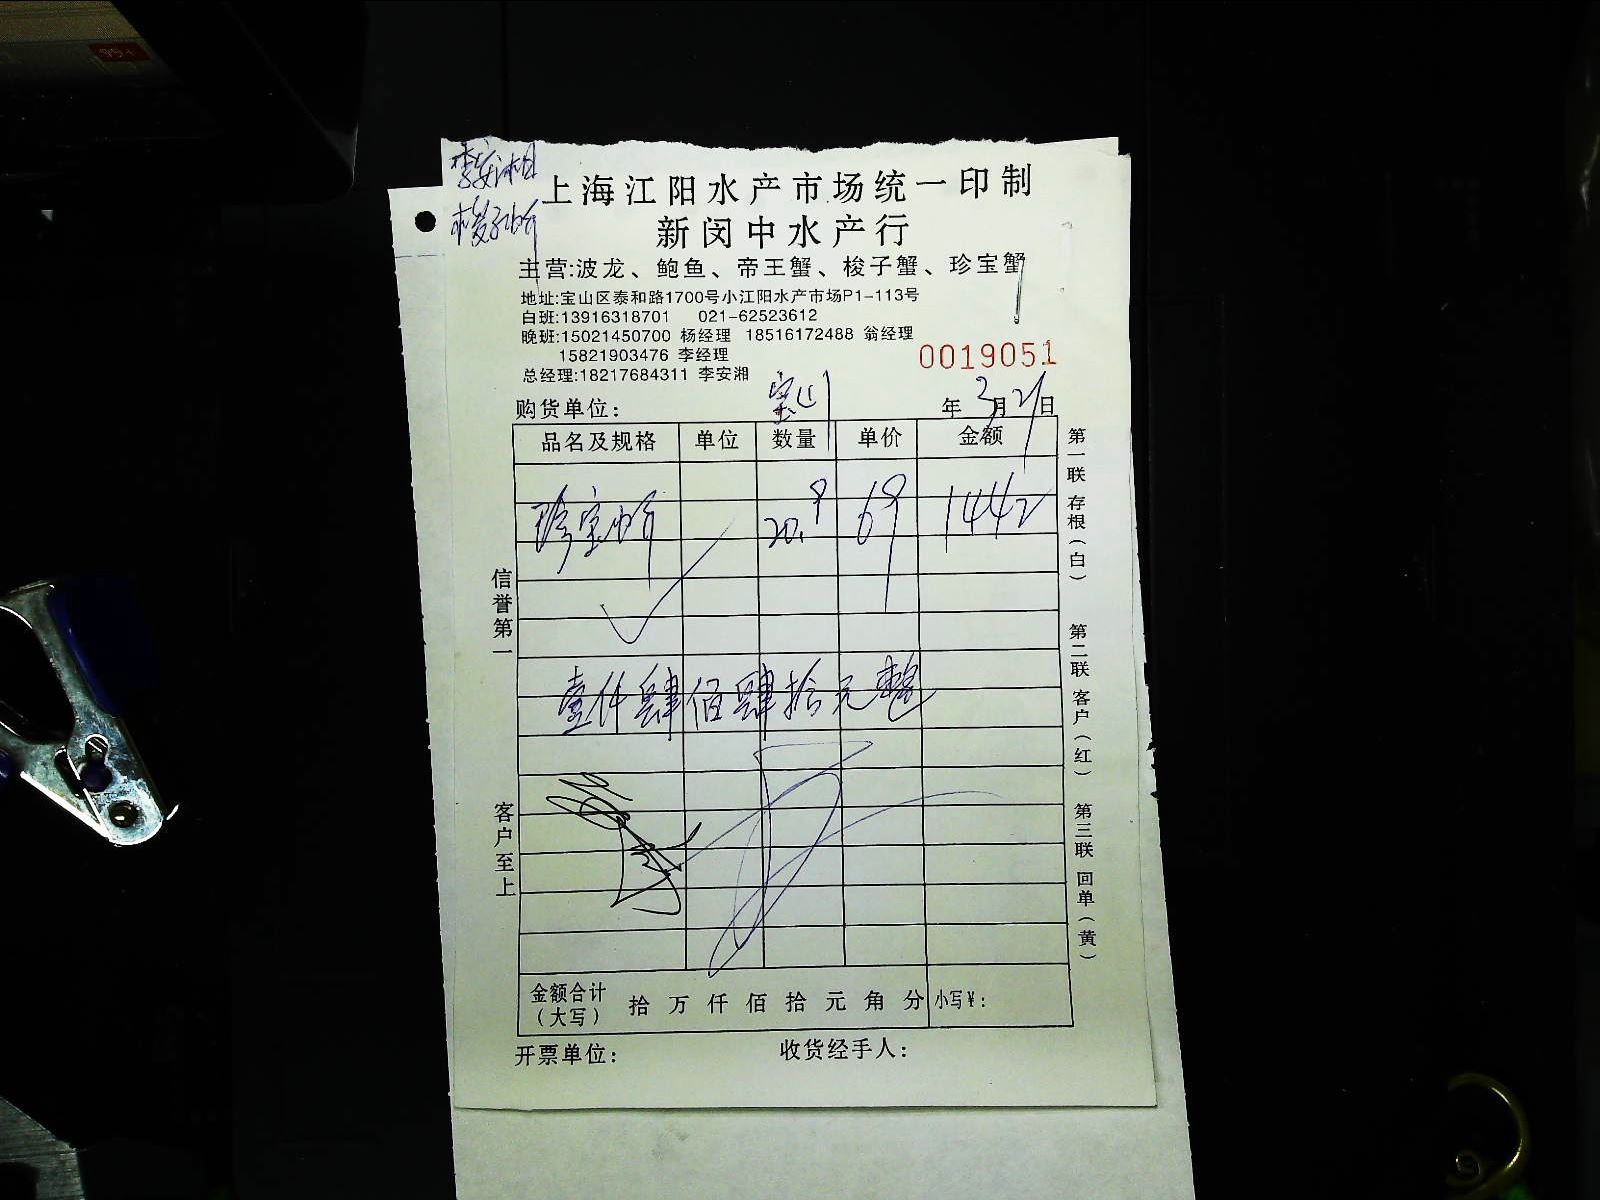 99+
李安湘
梭子虾
上海江阳水产市场统一印制
新闵中水产行
主营:波龙、鲍鱼、帝王蟹、梭子蟹、珍宝蟹
地址:宝山区泰和路1700号小江阳水产市场P1-113号
白班:13916318701 021-62523612
晚班:15021450700 杨经理 18516172488 翁经理
15821903476 李经理
0019051
总经理:18217684311 李安湘
购货单位: 宝山 年3月21日
品名及规格 单位 数量 单价 金额
珍宝 20.9 69 1442
壹仟肆佰肆拾元整
金额合计(大写) 拾 万 仟 佰 拾 元 角 分 小写¥:
开票单位: 收货经手人:
信誉第一
客户至上
第一联 存根(白)
第二联 客户(红)
第三联 回单(黄)